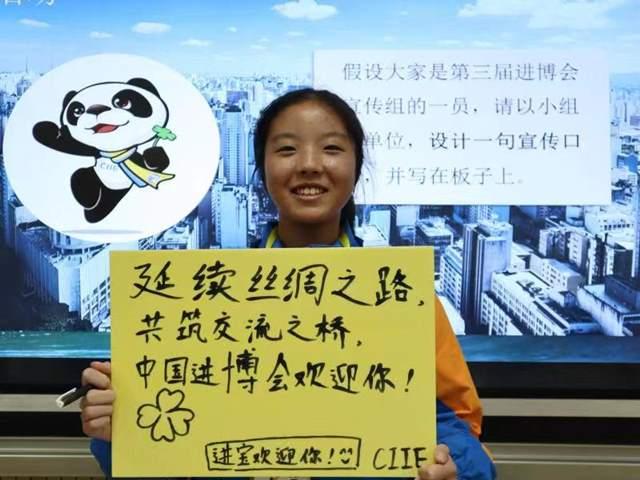 假设大家是第三届进博会
宣传组的一员，请以小组
单位，设计一句宣传口
，并写在板子上。
CIIE
延续丝绸之路，
共筑交流之桥，
中国进博会欢迎你！
进宝欢迎你！
CIIE